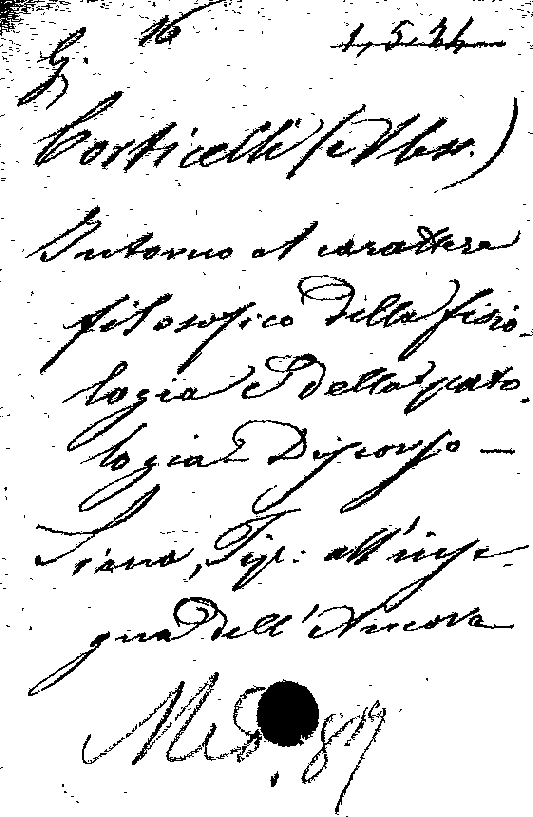 G. 16 1, 5. 34
Corticelli (Aless.)
Intorno al carattere
filosofico della fisio-
logia e della pato-
logia Discorso —
Siena, Tip. all'inse-
gna dell'Ancora
Med. 817